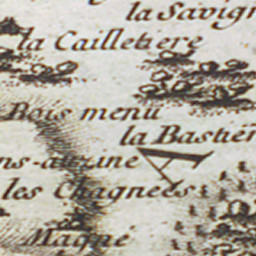 la Savign
la Cailletiere
Bois menu
la Bastier
ns-aumne
les Chagnees
Magné